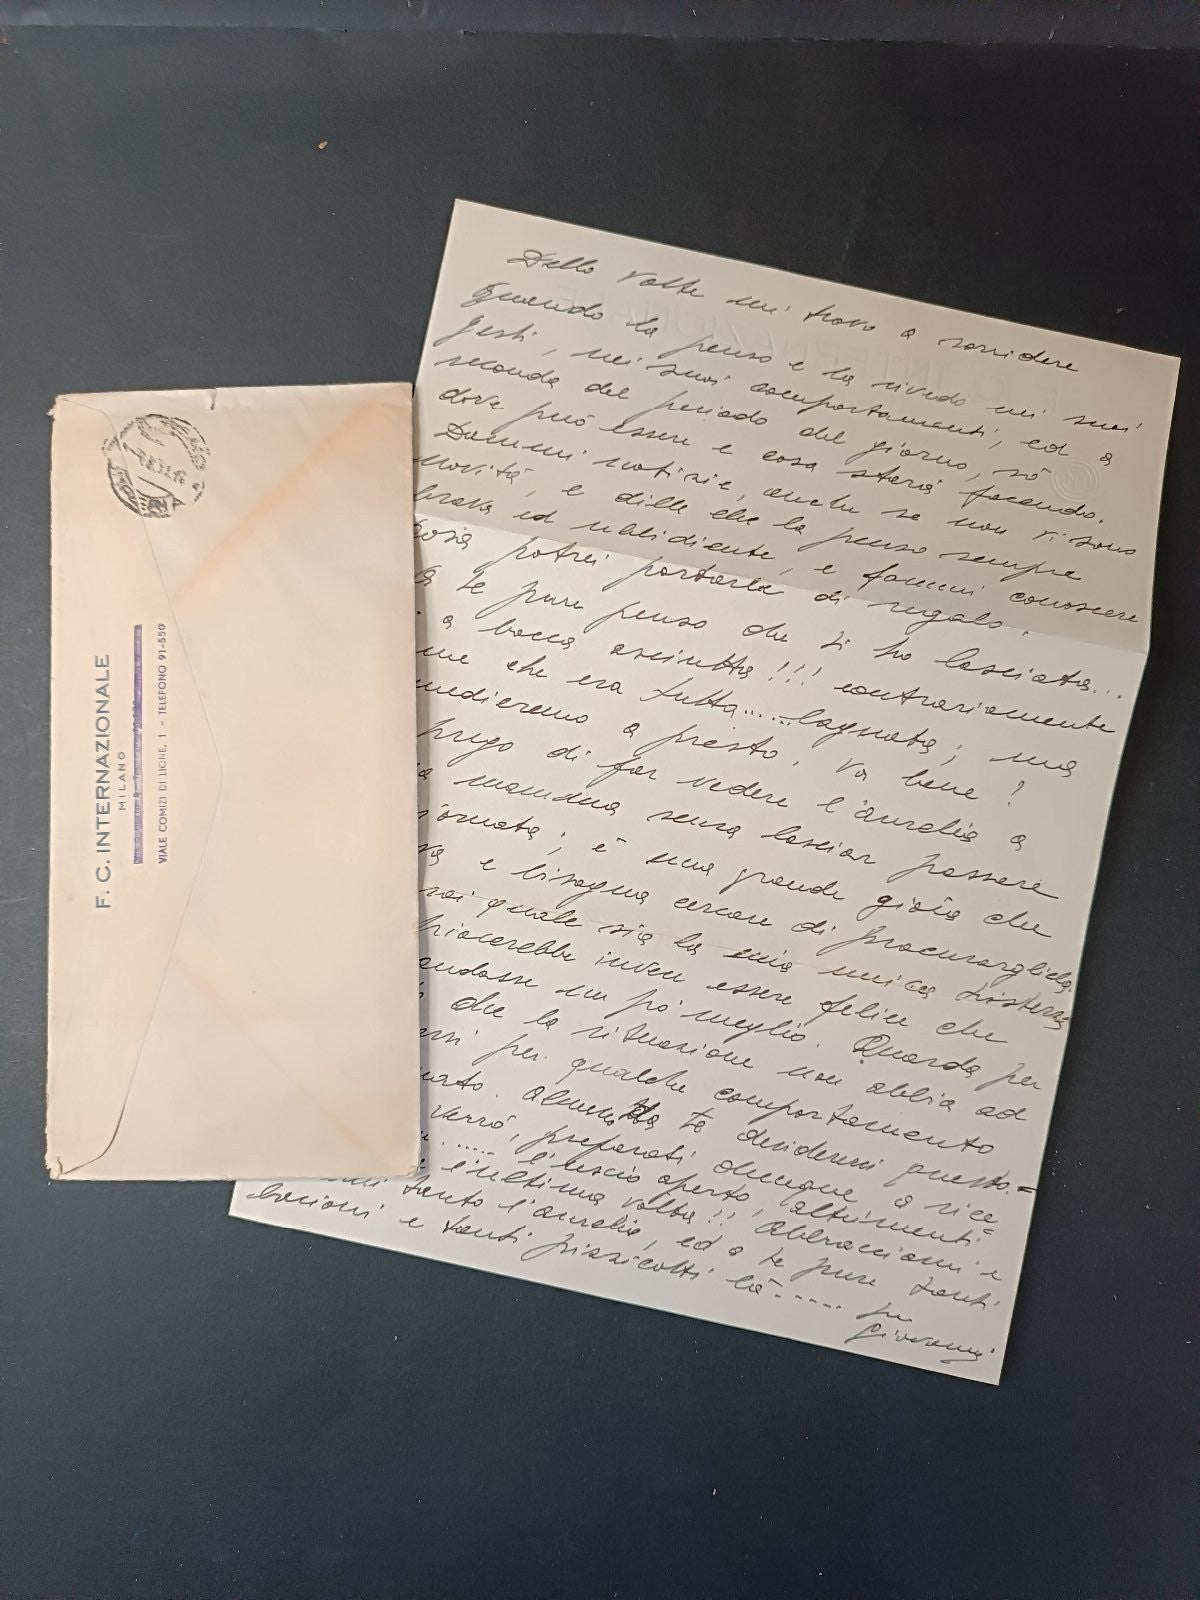 F. C. INTERNAZIONALE
MILANO
VIALE COMIZI DI LIONE, 1 - TELEFONO 91-550
Delle volte mi trovo a sorridere
quando la penso e la rivedo nei suoi
gesti, nei suoi comportamenti, ed a
seconda del periodo del giorno, sò
dove può essere e cosa starà facendo.
Dammi notizie, anche se non vi sono
novità, e dille che la penso sempre
brava ed ubbidiente, e fammi conoscere
cosa potrei portarle di regalo.
A te pure penso che ti ho lasciata...
a bocca asciutta!!! contrariamente
me che era tutta......bagnata; ma
rimedieremo a presto, va bene?
prego di far vedere l'Aurelia a
mamma senza lasciar passare
giornata; è una grande gioia che
e bisogna cercare di procurargliela.
sai quale sia la mia unica tristezza
piacerebbe invece essere felice che
andasse un pò meglio. Guarda per
che la situazione non abbia ad
per qualche comportamento
Almeno da te desidererei questo.=
verrò, preparati dunque a rice
...... l'uscio aperto, altrimenti=
l'ultima volta!! Abbracciami e
tanto l'Aurelia, ed a te pure tanti
bacioni e tanti pizzicotti là.....
Giovanni